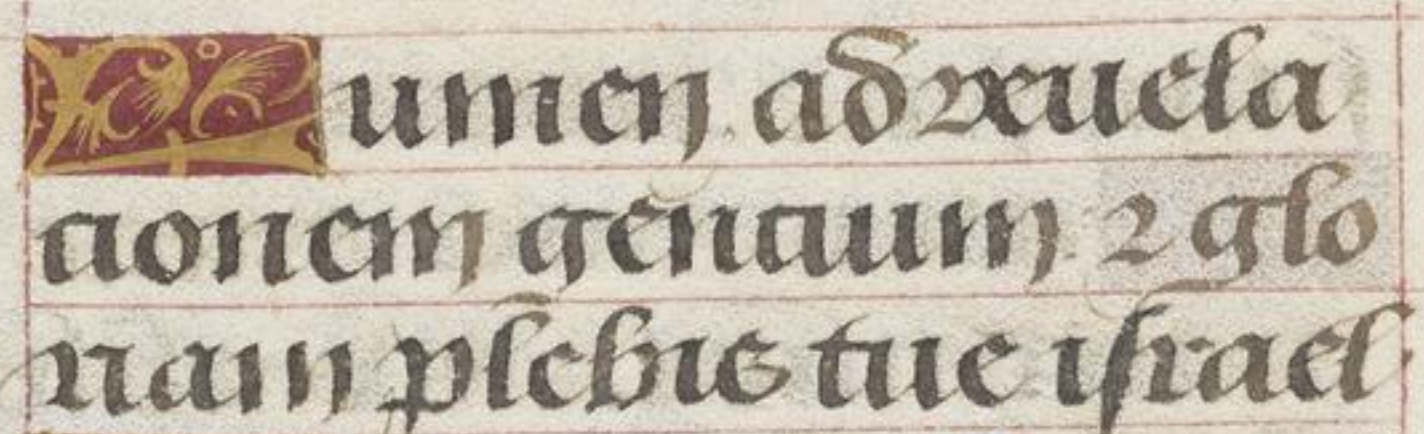 Lumen ad reuela
tionem gentium ⁊ glo
riam plebis tue israel